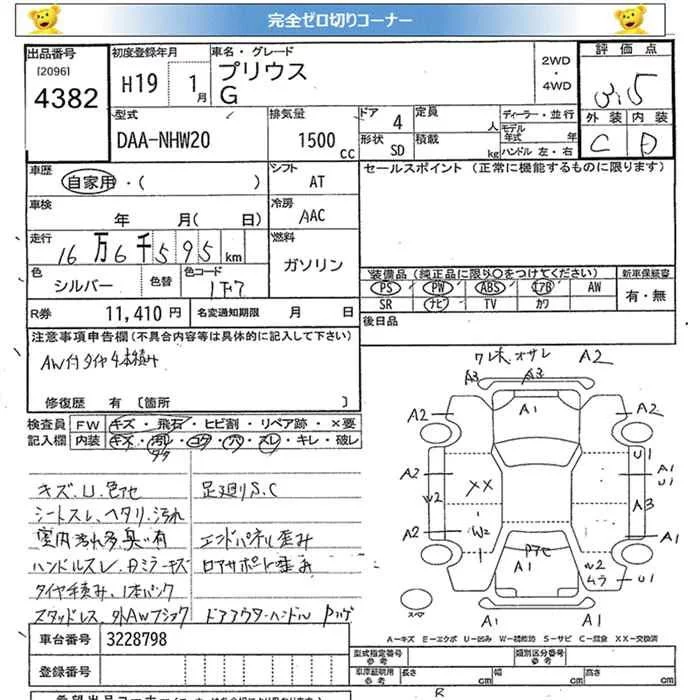 完全ゼロ切りコーナー
出品番号
[2096]
4382
初度登録年月
H19 1月
車名・グレード
プリウス
G
2WD
・
4WD
評価点
3.5
外装 内装
C D
型式
DAA-NHW20
排気量
1500 cc
ドア 4
形状 SD
定員 人
積載 kg
ディーラー・並行
モデル年式 年
ハンドル 左・右
車歴
自家用・( )
シフト
AT
セールスポイント (正常に機能するものに限ります)
車検
年 月( 日)
冷房
AAC
走行
16万6千595km
燃料
ガソリン
色
シルバー
色替
色コード
1F7
装備品(純正品に限り○をつけてください)
PS PW ABS エアB AW
SR ナビ TV カワ
新車保証書
有・無
R券 11,410円
名変通知期限 月 日
後日品
注意事項申告欄(不具合内容等は具体的に記入して下さい)
AW付タイヤ4本積み
修復歴 有 〔箇所 〕
検査員記入欄
FW キズ・飛石・ヒビ割・リペア跡・×要
内装 キズ・汚れ・コゲ・穴・スレ・キレ・破レ
キズ、U、色アセ
足廻りS、C
シートスレ、ヘタリ、汚れ
室内汚れ多 臭い有
エンドパネル歪み
ハンドルスレ、Dミラーキズ
ロアサポート歪み
タイヤ積み、1本パンク
スタッドレス、外AWフショク
ドアアウターハンドル Pハゲ
車台番号 3228798
登録番号
A2
A3 A3
A2 A1 A2
U1
A2 A1
U1
W2 XX A3
A2 W2 A1
Pアセ
A1 W2
ムラ U1
A1 A1
A－キズ E－エクボ U－凹み W－補修跡 S－サビ C－腐食 XX－交換済
型式指定番号
参考
類別区分番号
参考
車庫証明用
参考
長さ cm 幅 cm 高さ cm
R